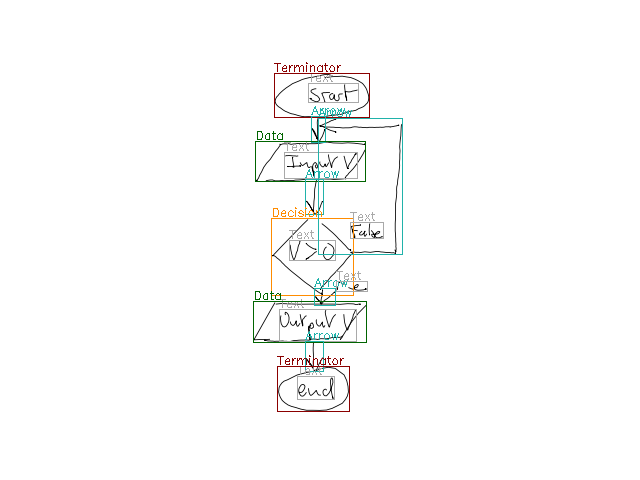 Terminator
Text
Start
Arrow
Arrow
Data
Text
Input V
Arrow
Decision
Text
False
Text
V>0
Text
Arrow
Data
Text
Output V
Arrow
Terminator
Text
end